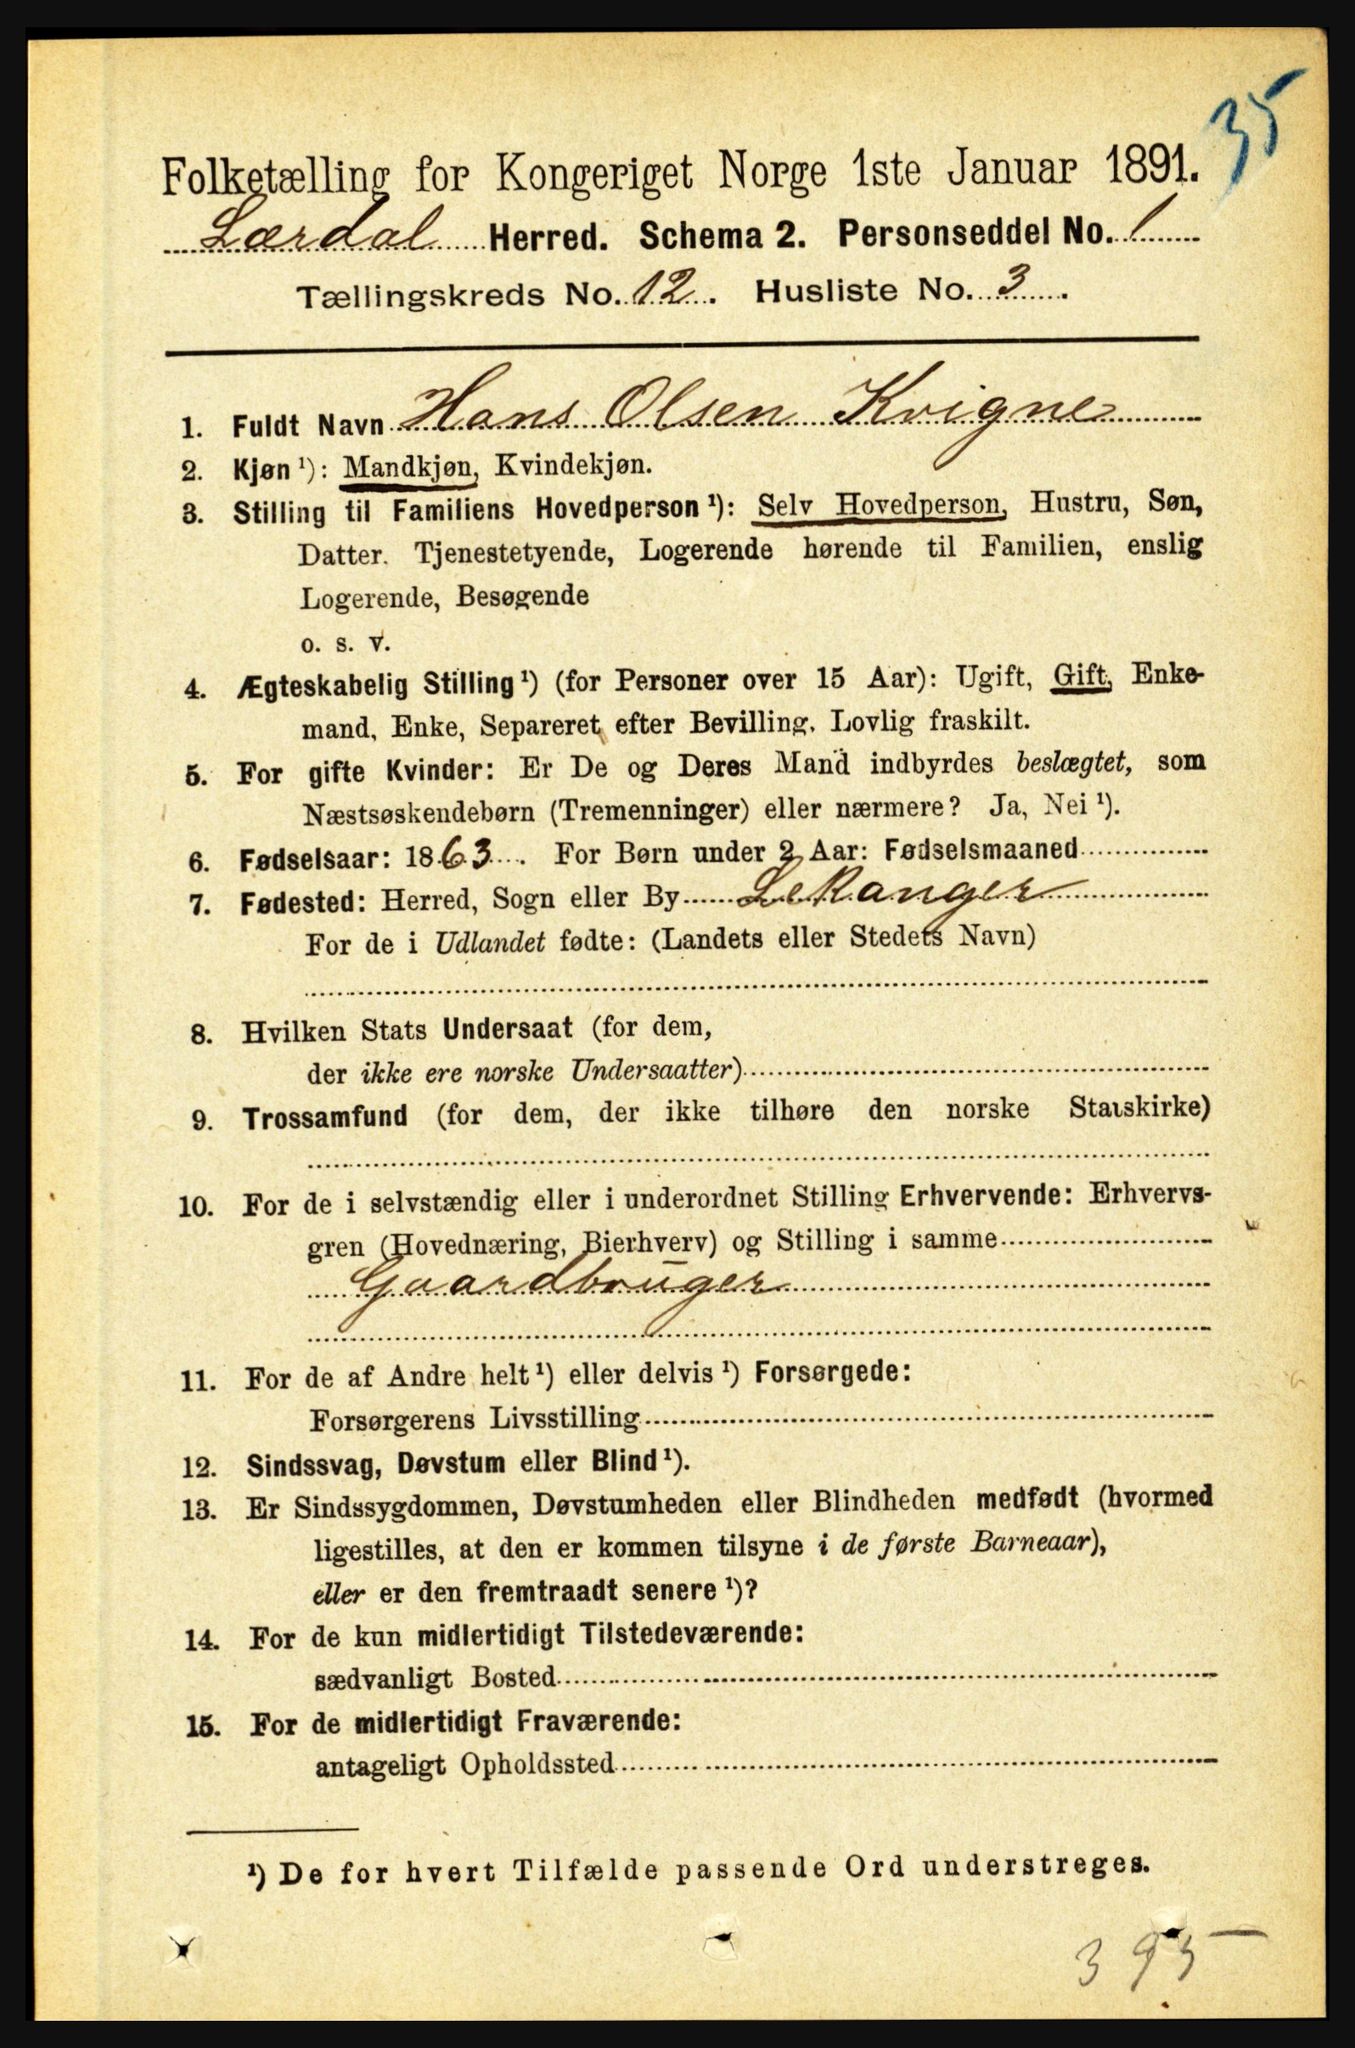 35
Folketælling for Kongeriget Norge 1ste Januar 1891.
Lærdal Herred. Schema 2. Personseddel No. 1
Tællingskreds No. 12. Husliste No. 3.
1. Fuldt Navn Hans Olsen Kvigne
2. Kjøn¹): Mandkjøn, Kvindekjøn.
3. Stilling til Familiens Hovedperson¹): Selv Hovedperson, Hustru, Søn,
Datter. Tjenestetyende, Logerende hørende til Familien, enslig
Logerende, Besøgende
o. s. v.
4. Ægteskabelig Stilling¹) (for Personer over 15 Aar): Ugift, Gift, Enke-
mand, Enke, Separeret efter Bevilling, Lovlig fraskilt.
5. For gifte Kvinder: Er De og Deres Mand indbyrdes beslægtet, som
Næstsøskendebørn (Tremenninger) eller nærmere? Ja, Nei¹).
6. Fødselsaar: 1863. For Børn under 2 Aar: Fødselsmaaned
7. Fødested: Herred, Sogn eller By Lekanger
For de i Udlandet fødte: (Landets eller Stedets Navn)
8. Hvilken Stats Undersaat (for dem,
der ikke ere norske Undersaatter)
9. Trossamfund (for dem, der ikke tilhøre den norske Statskirke)
10. For de i selvstændig eller i underordnet Stilling Erhvervende: Erhvervs-
gren (Hovednæring, Bierhverv) og Stilling i samme
Gaardbruger
11. For de af Andre helt¹) eller delvis¹) Forsørgede:
Forsørgerens Livsstilling
12. Sindssvag, Døvstum eller Blind¹).
13. Er Sindssygdommen, Døvstumheden eller Blindheden medfødt (hvormed
ligestilles, at den er kommen tilsyne i de første Barneaar),
eller er den fremtraadt senere¹)?
14. For de kun midlertidigt Tilstedeværende:
sædvanligt Bosted
15. For de midlertidigt Fraværende:
antageligt Opholdssted
¹) De for hvert Tilfælde passende Ord understreges.
395